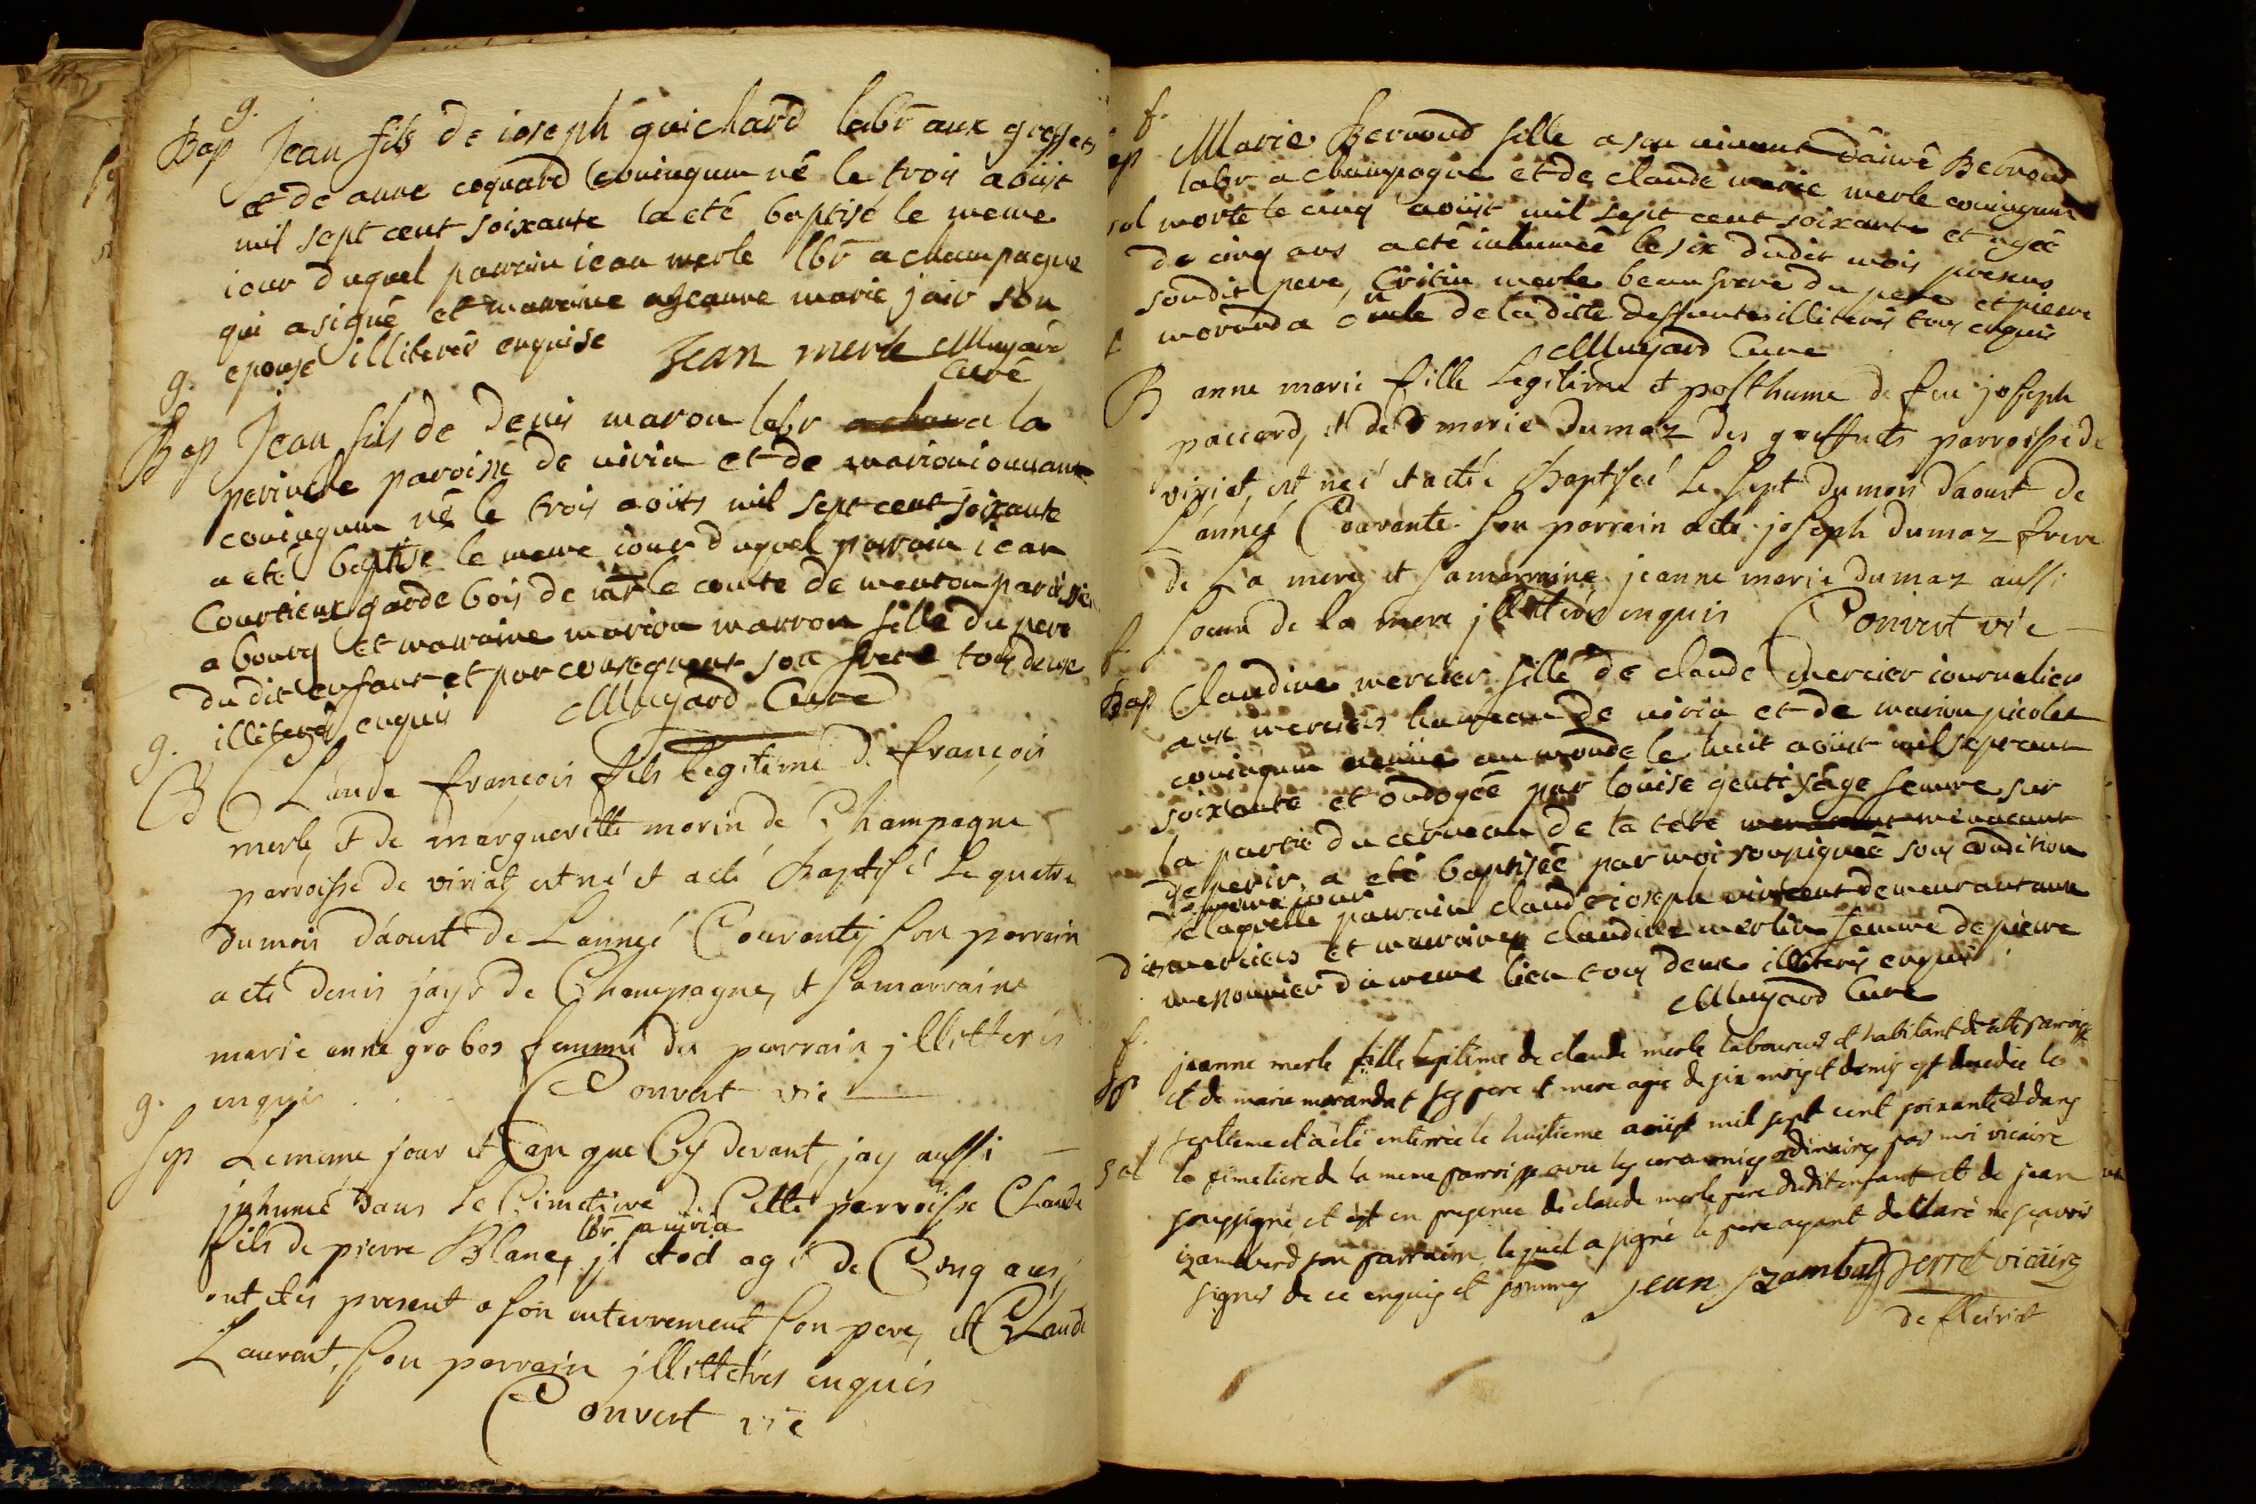 g.
Bap Jean fils de ioseph guichard labr aux greffets
et de anne coquard coniugum né le trois aoust
mil sept cent soixante la eté baptisé le meme
iour duquel parrain iean merle lbr a champagne
qui a signé et marraine jeanne marie jair son
epouse illiterés enquise Jean merle Mugard
Curé
g.
Bap Jean fils de denis maron labr a la
perinche paroisse de viria et de marion
coniugum né le trois aoûts mil sept cent soixante
a eté baptisé le meme iour duquel parrain iean
Courtieux garde bois de mr le comte de menton
a bourg et marraine marion marron fille du pere
du dit enfant et par consequent son frere tous deux
illiterés enquis Mugard Curé
g.
B Claude françois fils legitime de françois
merle, et de margueritte morin de Champagne
parroisse de viriat est né et a eté Baptisé le quatre
du mois d'aoust de Lannée Courante son parrain
a eté denis jayr de Champagne, et sa marraine
marie anne grobos femme du parrain jllitterés
g. enquis Convert vic
Sep Le meme jour et an que Cy devant, jay aussi
jnhumé dans Le Cimetiere de Cette parroisse Claude
lbr a viria
fils de pierre Blanc, jl etoit agé de Cinq ans,
ont etés present a son enterrement son pere, et Claude
Laurent, son parrain jllittérés enquis
Convert vic
f.
Marie Bernoud fille a son vivant d'aimé Bernoud
labr a champagne et de claude marie merle coniugum
sol morte le cinq aoust mil sept cent soixante et agée
de cinq ans a eté inhumée le six dudit mois presens
sondit pere, merle beaufrere du pere et pierre
morand a oncle de la ditte deffunte illiterés tous enquis
Mugard Curé
B anne marie fille Legitime et posthume de feu joseph
paccard, et de marie Dumaz des greffets parroisse de
viriat, est neé et a eté Baptiseé Le sept du mois d'aoust de
L'année Courante son parrain a eté joseph dumaz frere
de La mere et sa marraine jeanne marie dumaz aussi
f. soeur de la mere jlliterés enquis Convert vic
Bap Claudine mercier fille de claude mercier iournalier
aux merciers hameau de viria et de marion picolet
coniugum venüe au monde le huit aoust mil sept cent
soixante et ondoyée par loüise genti sage femme sur
la partie du cerveau de la tete menacant
de perir, a eté baptisée par moi soussigné sous condition
le meme iour
de laquelle parrain claude ioseph vincent demeurant aux
dits merciers et marraine claudine merlin femme de pierre
messonnier du meme lieu tous deux illiterés enquis
Mugard Curé
f.
jeanne merle fille legitime de claude merle laboureur et habitant de cette paroisse
et de marie morandat ses pere et mere agée de six mois et demis est decedée le
septieme et a eté enterrée le huitieme aoust mil sept cent soixante dans
Sol le cimetiere de la meme parroisse avec les ceremonies ordinaires par moi vicaire
soussigné et en presence de claude merle pere dudit enfant et de jean
izambard son parrain, lequel a signé le pere ayant declaré ne sçavoir
signer de ce enquis et sommé jean jzambart perret vicaire
de fleiriat